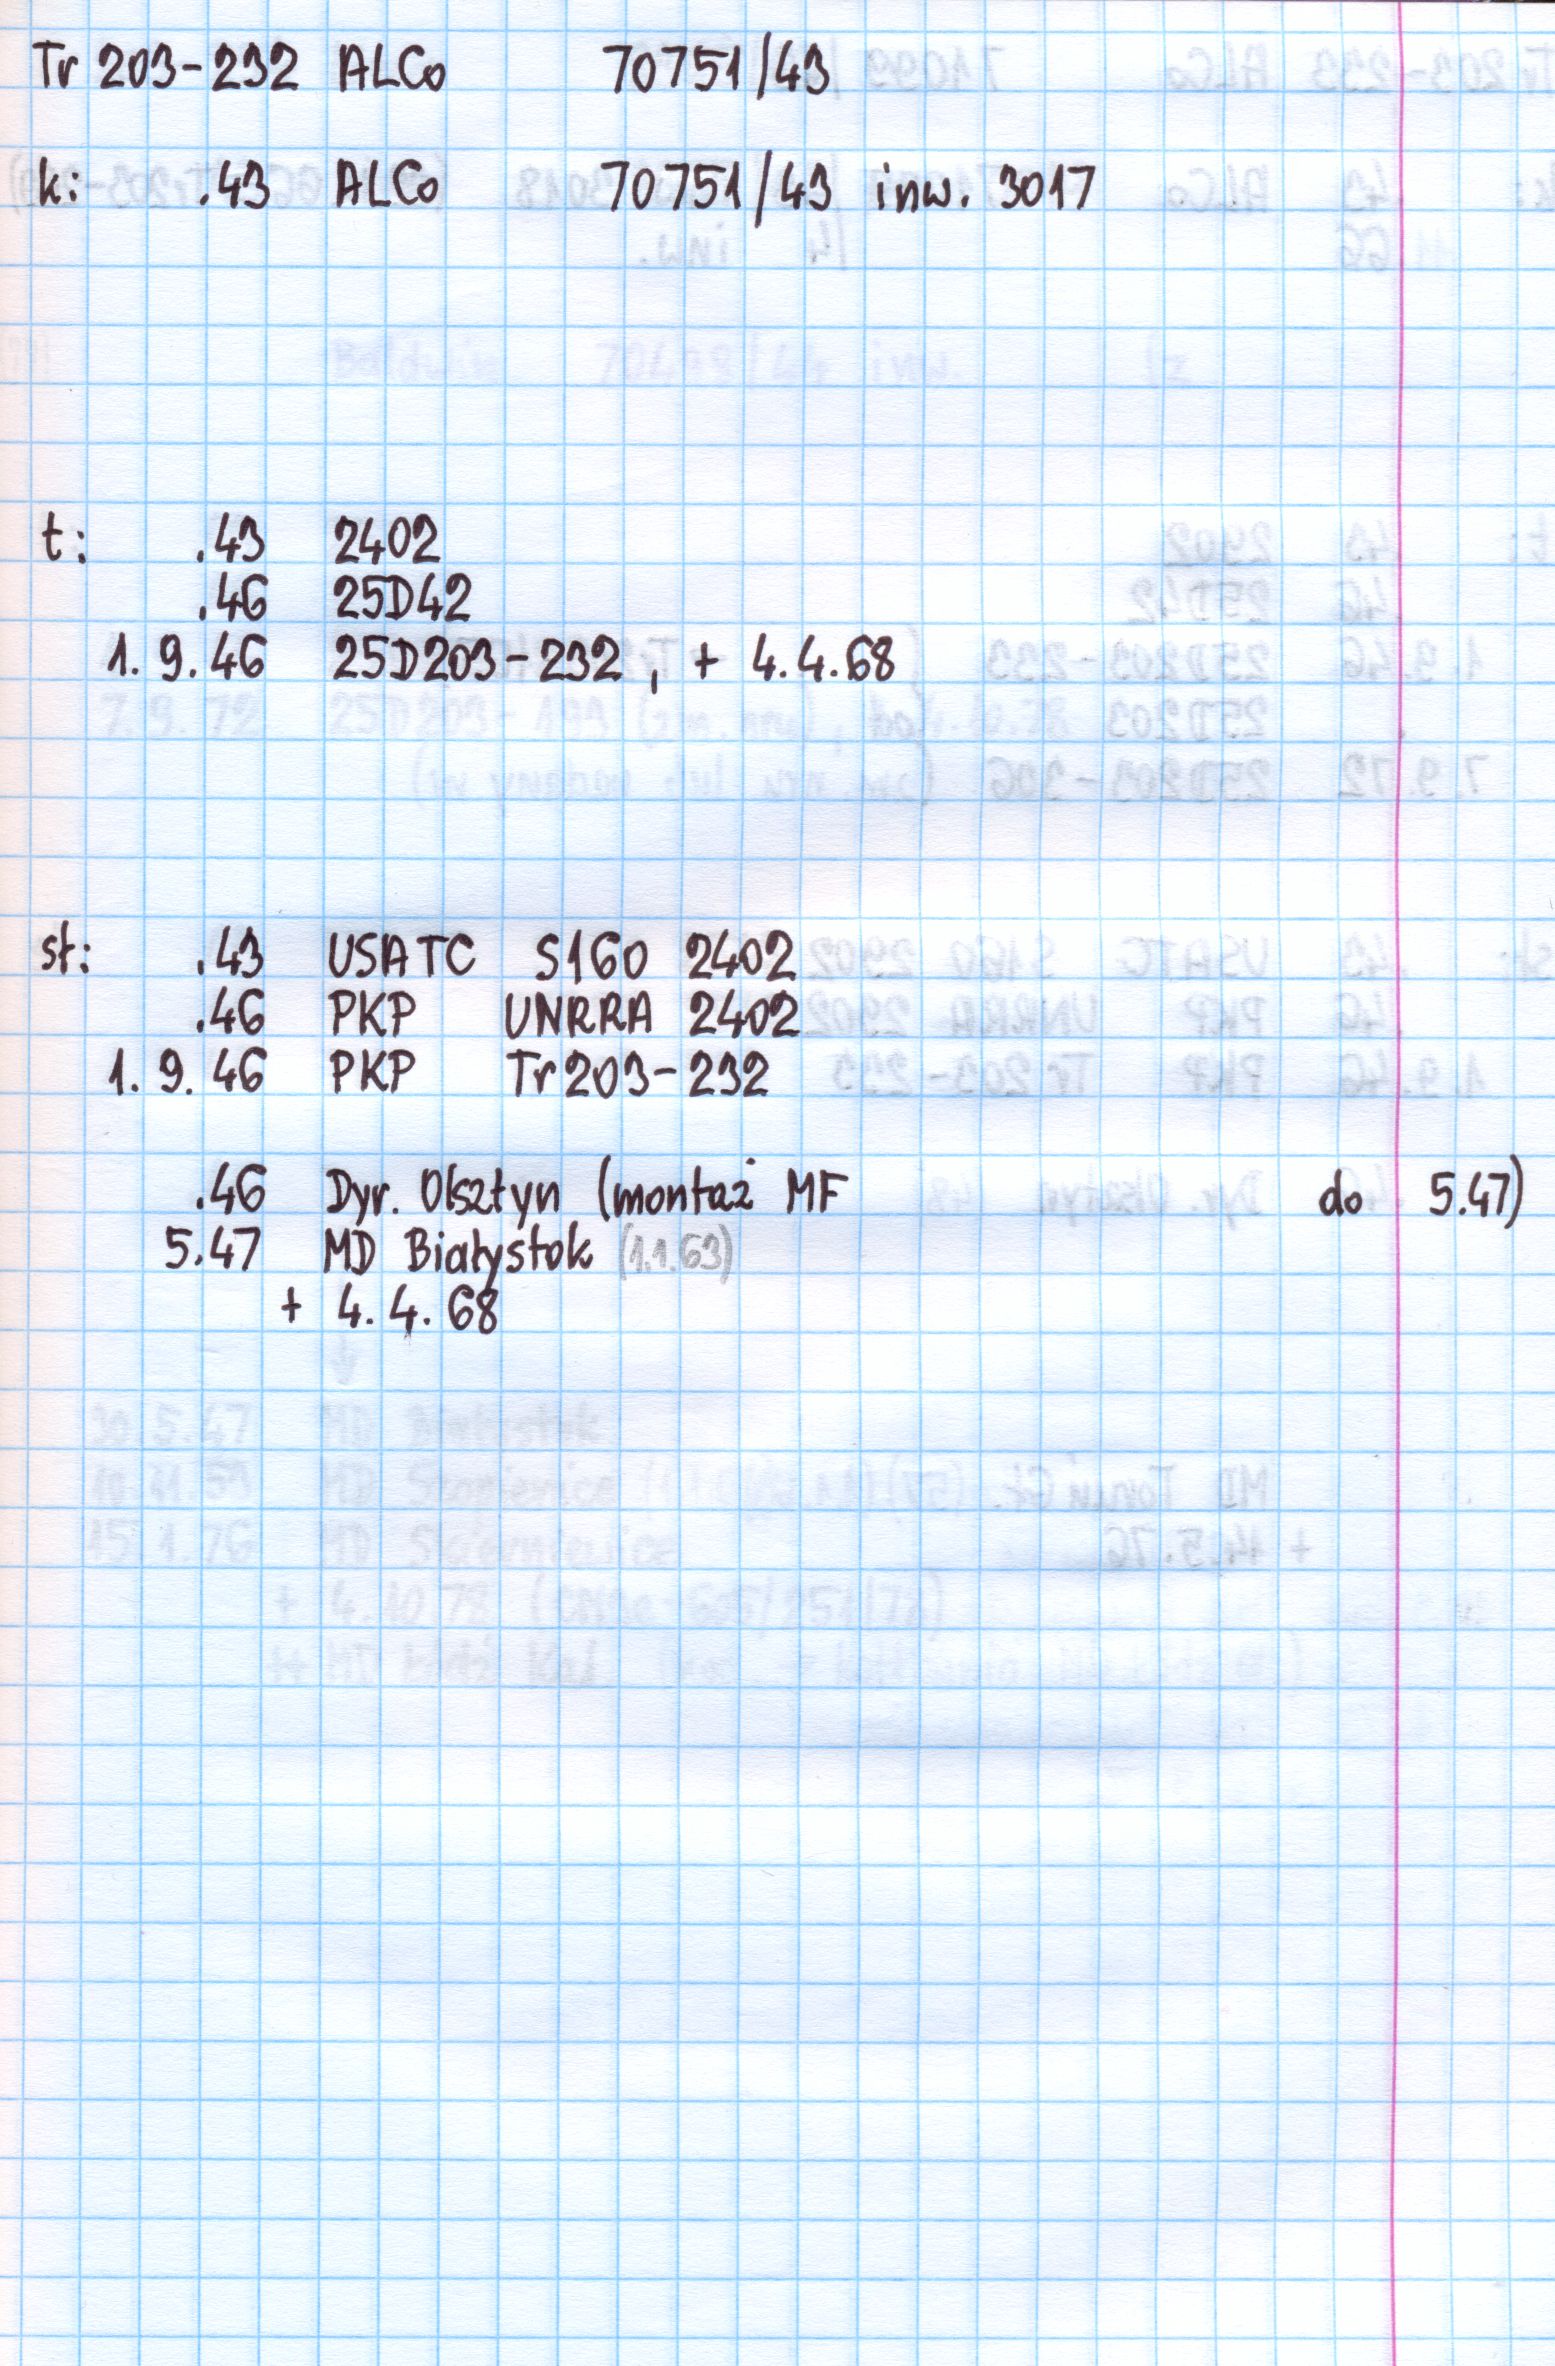 Tr 203-232 ALCo 70751/43
k: .43 ALCo 70751/43 inw. 3017
t: .43 2402
.46 25D42
1.9.46 25D203-232, + 4.4.68
st: .43 USATC S160 2402
.46 PKP UNRRA 2402
1.9.46 PKP Tr203-232
.46 Dyr. Olsztyn (montaż MF do 5.47)
5.47 MD Białystok (1.1.63)
+ 4.4.68